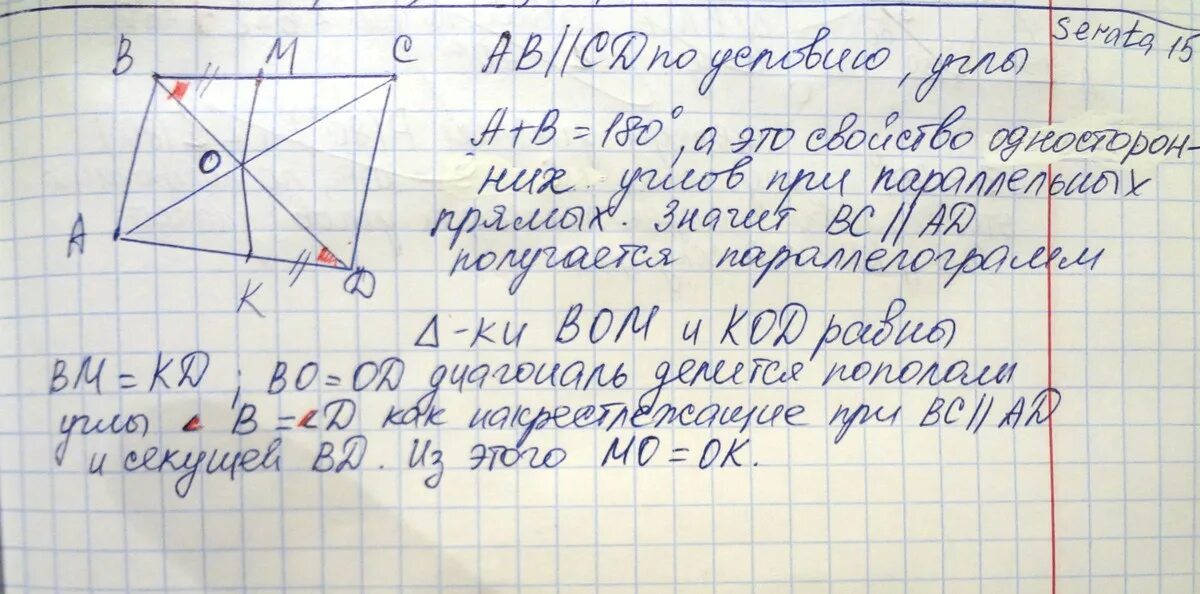 Serata 15
B M C
O
A
K
D
AB//CD по условию, углы
A+B=180°, а это свойство односторон-
них углов при параллельных
прямых. Значит BC//AD
получается параллелограмм
Δ-ки BOM и KOD равны
BM=KD; BO=OD диагональ делится пополам
углы ∠B=∠D как накрестлежащие при BC//AD
и секущей BD. Из этого MO=OK.